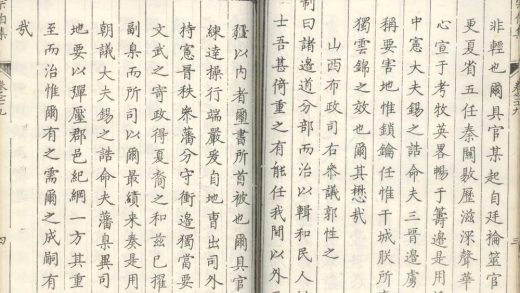 非輕也爾具官某起自廷掄筮官
更夏省五任秦關敭歷滋深聲華
心宣于考牧英畧暢于籌邊是用
中憲大夫錫之誥命夫三晉邊虜
稱要害地惟鎖鑰任惟干城朕所
獨雲錦之效也爾其懋哉
山西布政司右參議郭性之
制曰諸邊道分部而治以輯和民人
士吾甚倚重之有能任我閫以外
疆以內者爾書所首被也爾具官
練達操行端嚴爰自地曹出司外
持憲晉秩參藩分守衝邊獨當要
文武之寄政得夏裔之和茲已擢
副臬而所司以爾最績來奏是用
朝議大夫錫之誥命夫藩臬異司
地要以彈壓郡邑紀綱一方其重
至而治惟爾有之需爾之成嗣有
哉
四